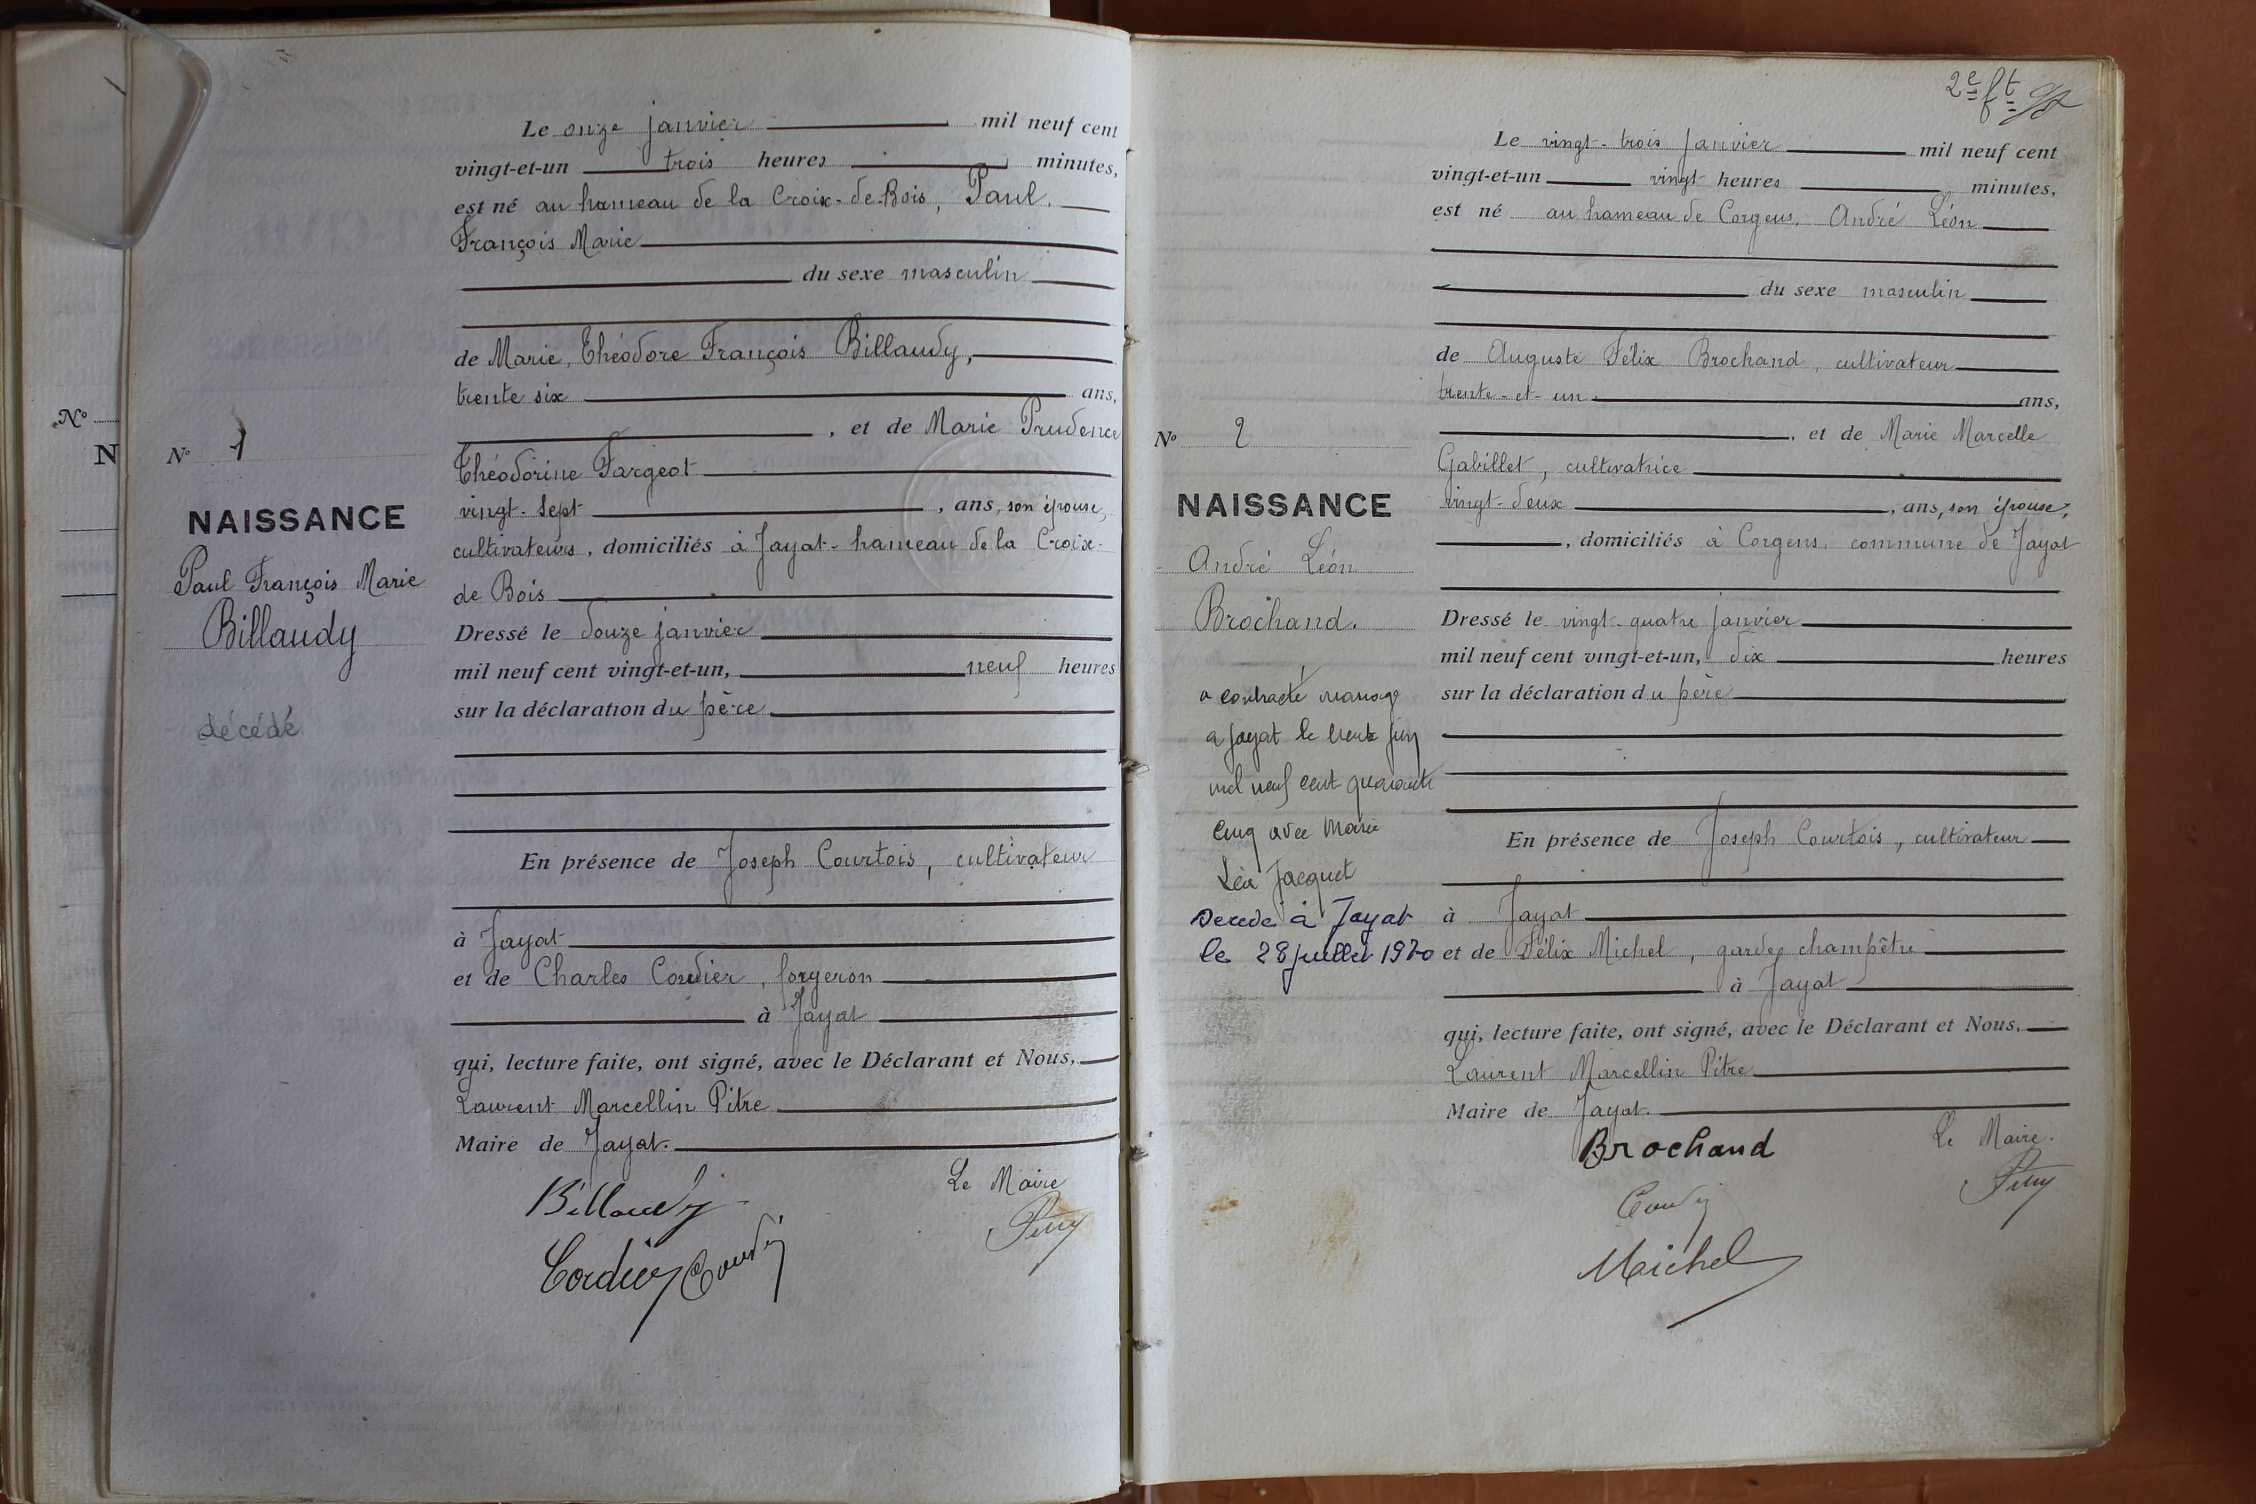 N°
N
N° 1
NAISSANCE
Paul François Marie
Billaudy
décédé
Le onze janvier mil neuf cent
vingt-et-un trois heures minutes,
est né au hameau de la Croix-de-Bois, Paul
François Marie
du sexe masculin
de Marie, Théodore François Billaudy,
trente six ans,
, et de Marie Prudence
Théodorine Fargeot
vingt-sept , ans, son épouse,
cultivateurs, domiciliés à Jayat-hameau de la Croix-
de Bois
Dressé le douze janvier
mil neuf cent vingt-et-un, neuf heures
sur la déclaration du père
En présence de Joseph Courtois, cultivateur
à Jayat
et de Charles Cordier, forgeron
à Jayat
qui, lecture faite, ont signé, avec le Déclarant et Nous,
Laurent Marcellin Pitre
Maire de Jayat.
Le Maire
Billaudy
Cordier
2e ft
N° 2
NAISSANCE
André Léon
Brochand.
a contracté mariage
a Jayat le trente juin
mil neuf cent quarante
cinq avec Marie
Léa Jacquet
Decede à Jayat
le 28 juillet 1970
Le vingt-trois janvier mil neuf cent
vingt-et-un vingt heures minutes,
est né au hameau de Corgens. André Léon
du sexe masculin
de Auguste Félix Brochand, cultivateur
trente-et-un ans,
, et de Marie Marcelle
Gabillet, cultivatrice
vingt-deux , ans, son épouse,
, domiciliés à Corgens. commune de Jayat
Dressé le vingt-quatre janvier
mil neuf cent vingt-et-un, dix heures
sur la déclaration du père
En présence de Joseph Courtois, cultivateur
à Jayat
et de Félix Michel, garde champêtre
à Jayat
qui, lecture faite, ont signé, avec le Déclarant et Nous,
Laurent Marcellin Pitre
Maire de Jayat.
Brochand
Le Maire.
Michel